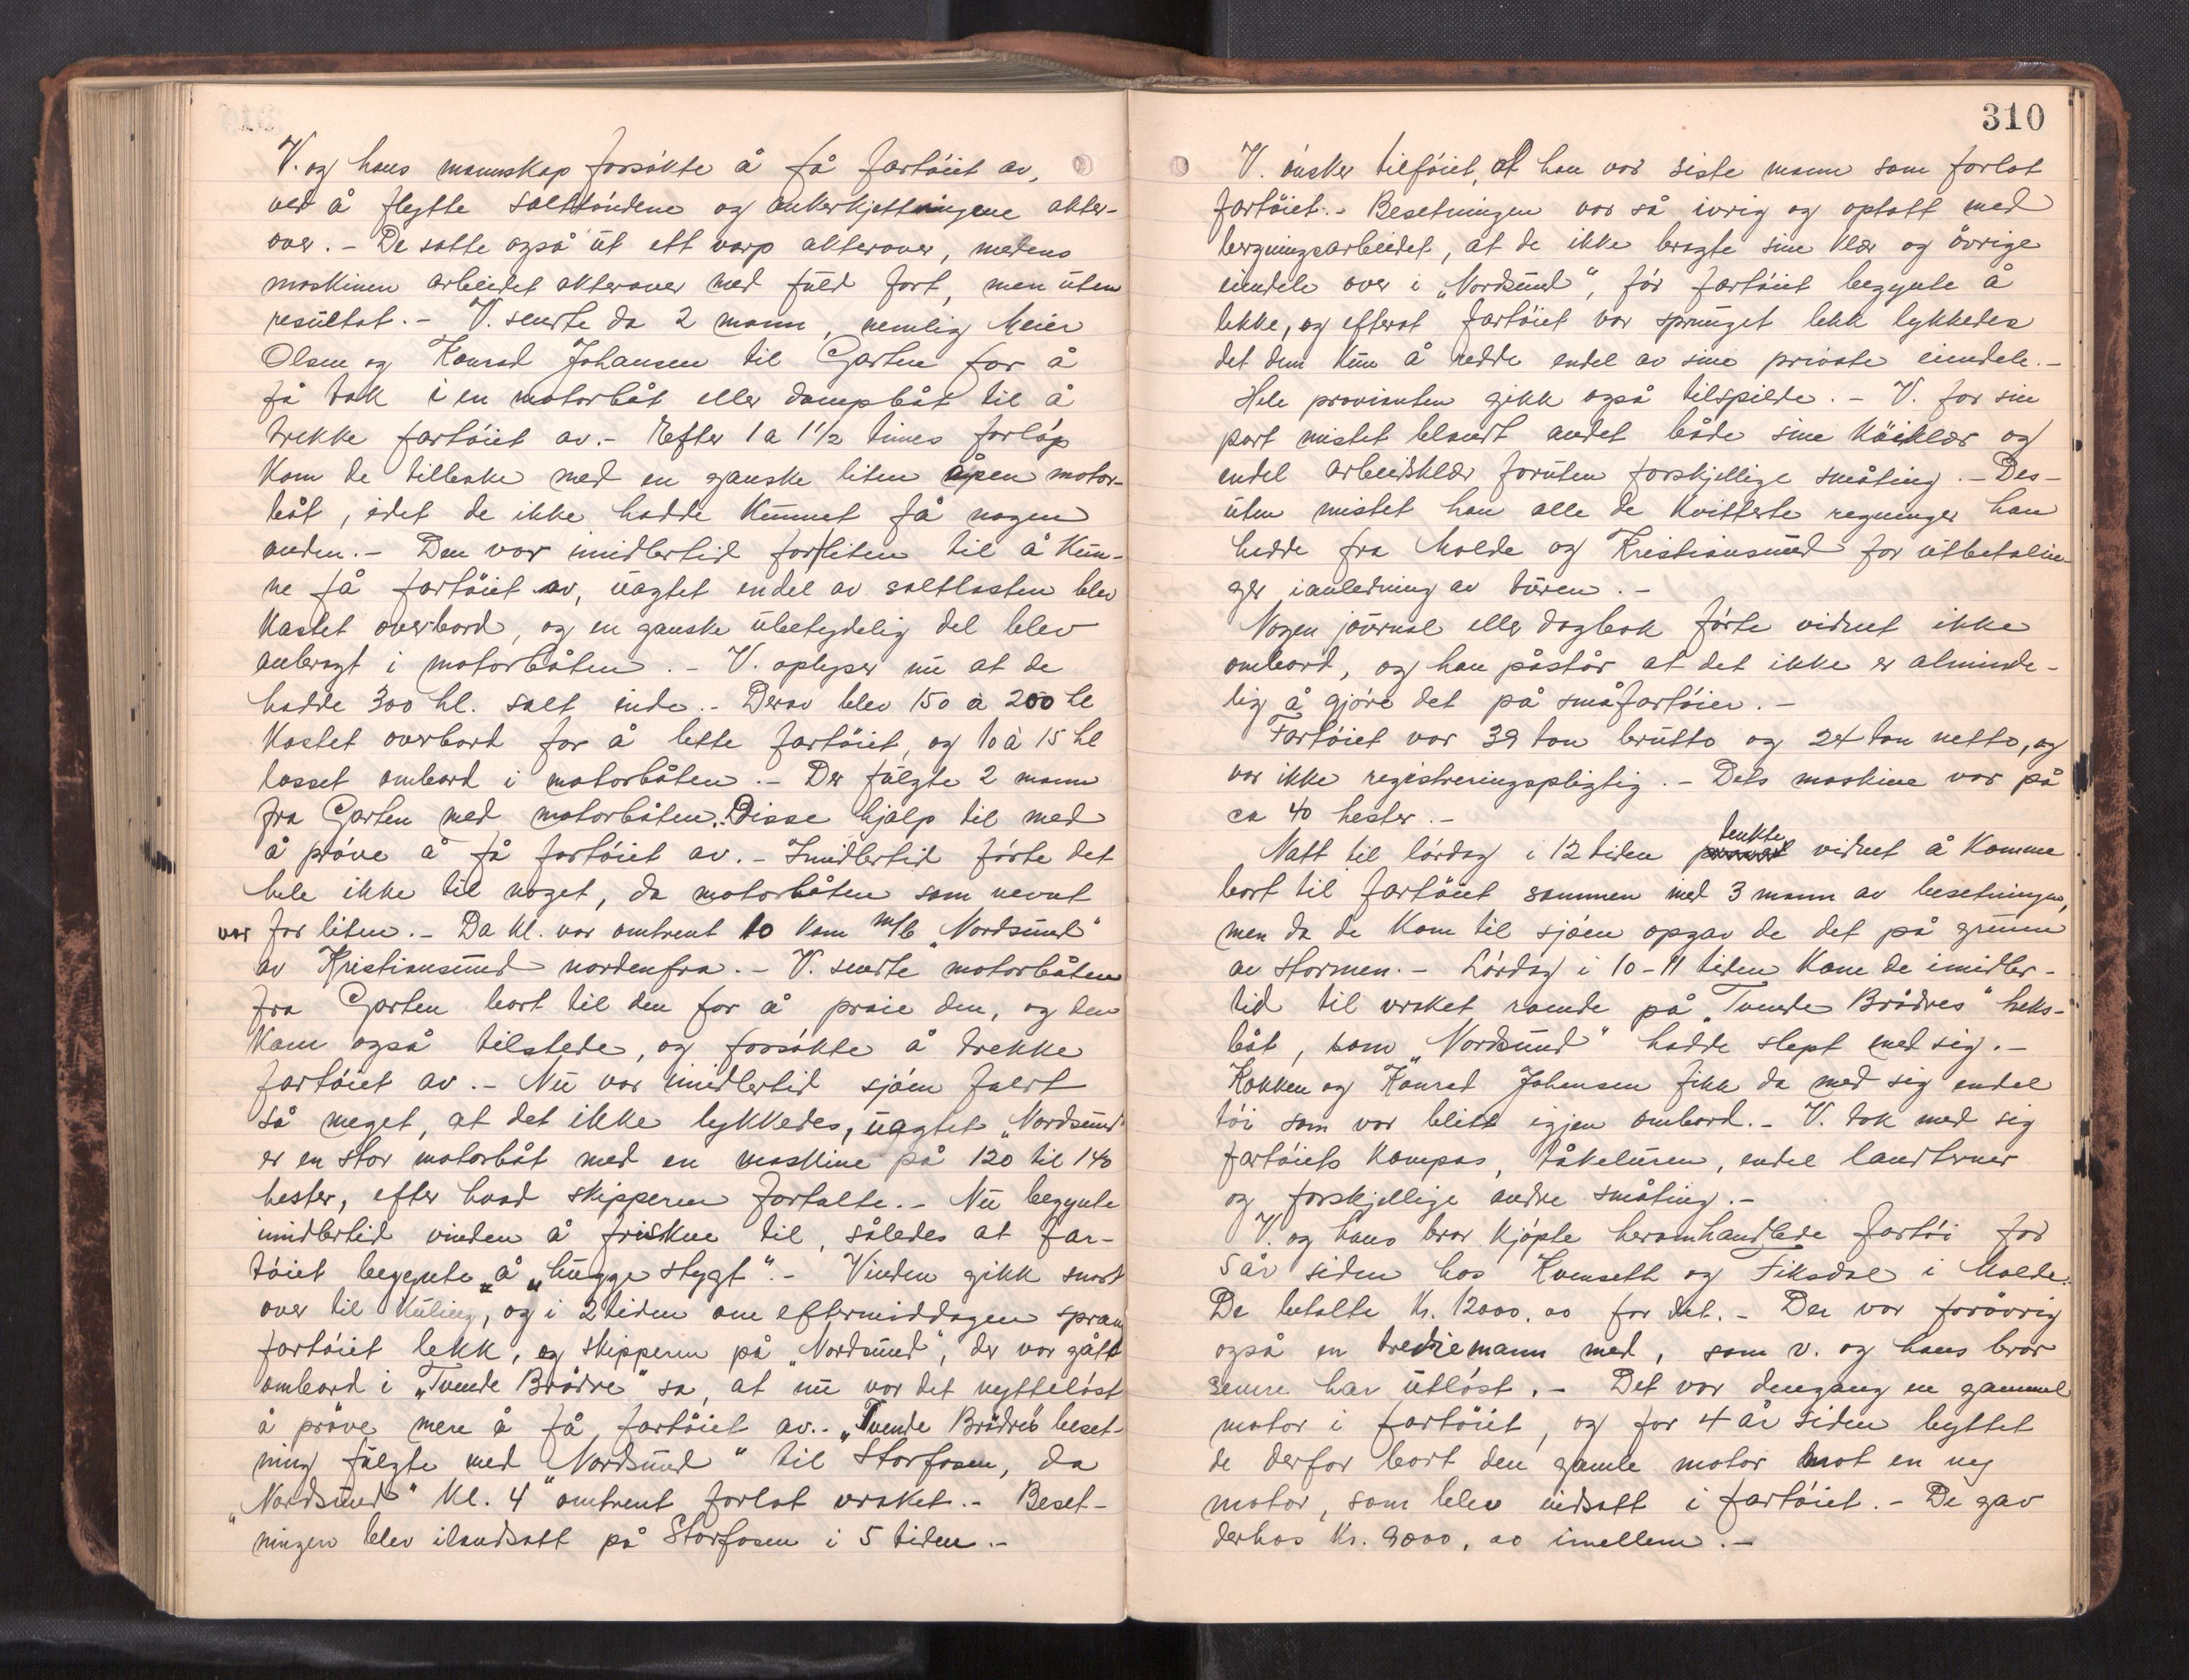 V. og hans mannskap forsökte å få fartöiet av,
ved å flytte salttöndene og ankerkjettningene akter-
over. - De satte også ut ett varp akterover, medens
maskinen arbeidet akterover med fuld fart, men uten
resultat. - V. sendte da 2 mann, nemlig Meier
Olsen og Konrad Johansen til Garten for å
få tak i en motorbåt eller dampbåt til å
trekke fartöiet av. - Efter 1 a 1 1/2 times forlöp
kom de tilbake med en ganske liten åpen motor-
båt, idet de ikke hadde kunnet få nogen
anden. - Den var imidlertid for liten til å kun-
ne få fartöiet av, uagtet endel av saltlasten blev
kastet overbord, og en ganske ubetydelig del blev
anbragt i motorbåten. - V. oplyser nu at de
hadde 300 hl. salt inde. - Derav blev 150 à 200 hl
kastet overbord for å lette fartöiet, og 10 à 15 hl
losset ombord i motorbåten. - Der fulgte 2 mann
fra Garten med motorbåten. Disse hjalp til med
å pröve å få fartöiet av. - Imidlertid förte det
hele ikke til noget, da motorbåten som nevnt
var for liten. - Da kl. var omtrent 10 kom m/b "Nordsund"
av Kristiansund nordenfra. - V. sendte motorbåten
fra Garten bort til den for å praie den, og den
kom også tilstede, og forsökte å trekke
fartöiet av. - Nu var imidlertid sjöen faldt
så meget, at det ikke lykkedes, uagtet "Nordsund"
er en stor motorbåt med en maskine på 120 til 140
hester, efter hvad skipperen fortalte. - Nu begynte
imidlertid vinden å friskne til, således at far-
töiet begynte å "hugge stygt". - Vinden gikk snart
over til kuling, og i 2 tiden om eftermiddagen sprang
fartöiet lekk, og skipperen på "Nordsund", der var gått
ombord i "Tvende Brödre" sa, at nu var det nytteløst
å pröve mere å få fartöiet av. - "Tvende Brödre"s beset-
ning fulgte med "Nordsund" til Storfosen, da
"Nordsund" kl. 4 omtrent forlot vraket. - Beset-
ningen blev ilandsatt på Storfosen i 5 tiden. -
310
V. önsker tilföiet, at han var siste mann som forlot
fartöiet. - Besetningen var så ivrig og optatt med
bergningsarbeidet, at de ikke bragte sine klær og övrige
eiendele over i "Nordsund", för fartöiet begynte å
lekke, og efterat fartöiet var sprunget lekk lykkedes
det dem kun å redde endel av sine private eiendele. -
Hele provianten gikk også tilspilde. - V. for sin
part mistet blandt andet både sine köiklær og
endel arbeidsklær foruten forskjellige småting. - Des-
uten mistet han alle de kvitterte regninger han
hadde fra Molde og Kristiansund for utbetalin-
ger ianledning av turen. -
Nogen journal eller dagbok förte vidnet ikke
ombord, og han påstår at det ikke er alminde-
lig å gjöre det på småfartöier. -
Fartöiet var 39 ton brutto og 24 ton netto, og
var ikke registreringspligtig. - Dets maskine var på
ca 40 hester. -
Natt til lördag i 12 tiden tenkte vidnet å komme
bort til fartöiet sammen med 3 mann av besetningen,
men da de kom til sjöen opgav de det på grunn
av stormen. - Lördag i 10-11 tiden kom de imidler-
tid til vraket roende på "Tvende Brödres" heks-
båt, som "Nordsund" hadde slept med sig. -
Kokken og Konrad Johansen fikk da med sig endel
töi som var blitt igjen ombord. - V. tok med sig
fartöiets kompas, tåkeluren, endel landterner
og forskjellige andre småting. -
V. og hans bror kjöpte heromhandlede fartöi for
5 år siden hos Kvenseth og Fiksdal i Molde.
De betalte kr. 12000.00 for det. - Der var forövrig
også en trediemann med, som v. og hans bror
senere har utlöst. - Det var dengang en gammel
motor i fartöiet, og for 4 år siden byttet
de derfor bort den gamle motor mot en ny
motor, som blev indsatt i fartöiet. - De gav
derhos kr. 9000,00 imellem. -